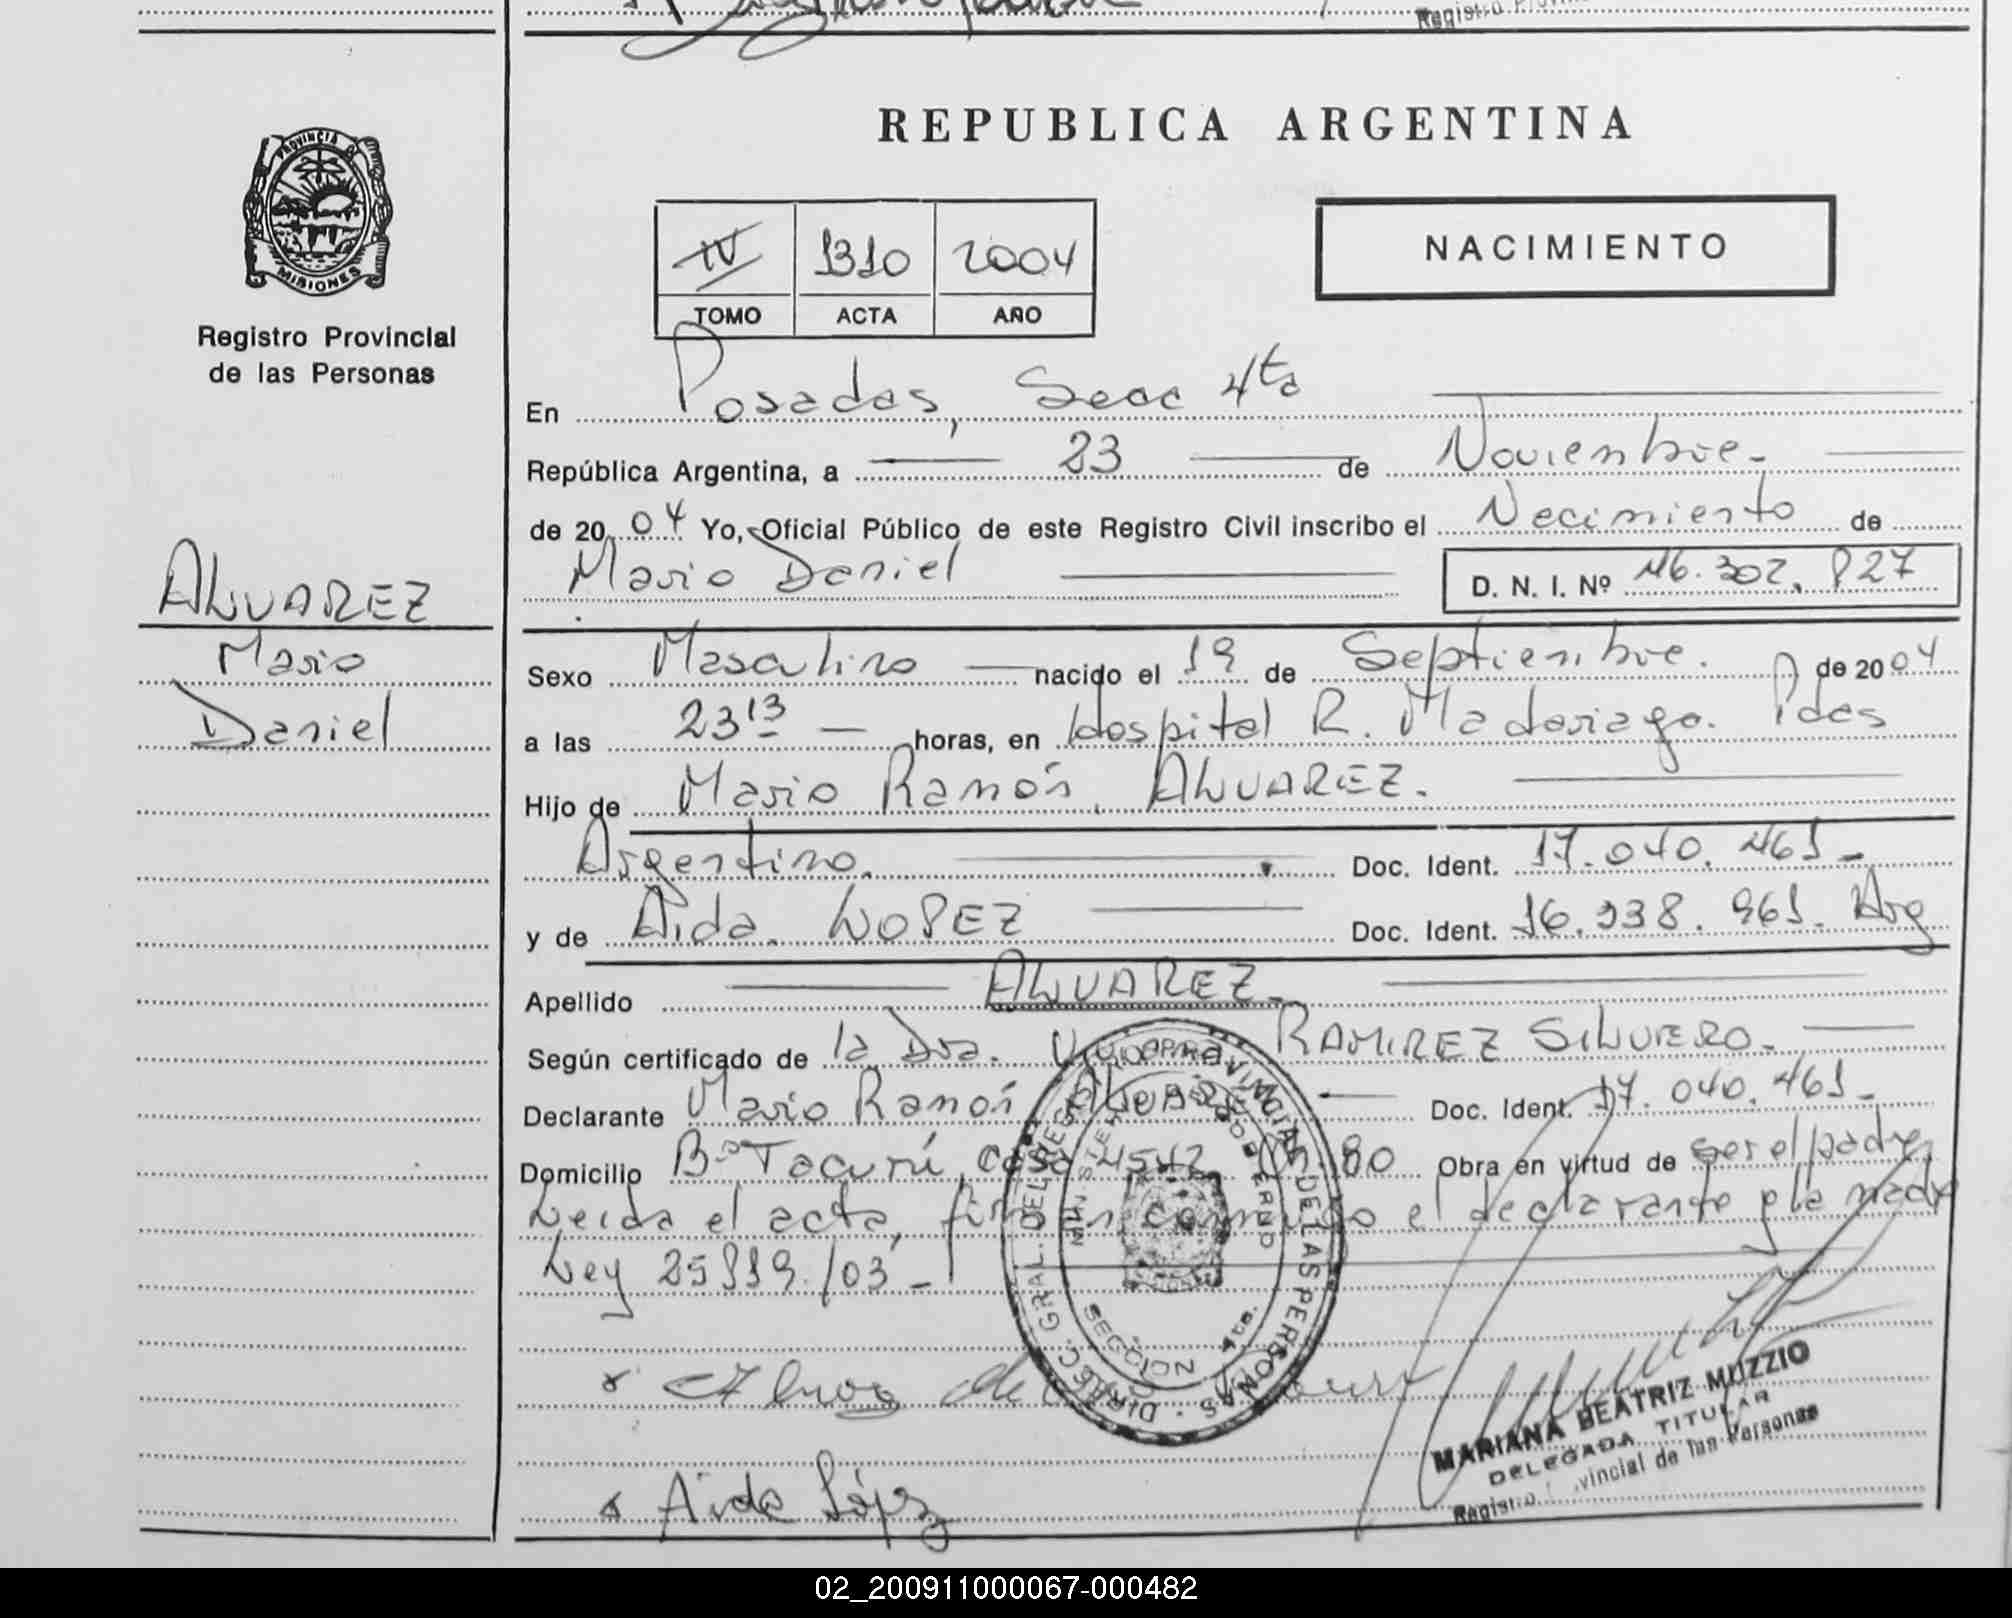 PROVINCIA DE
MISIONES
Registro Provincial
de las Personas
ALVAREZ
Mario
Daniel
REPUBLICA ARGENTINA
IV 1310 2004
TOMO ACTA AÑO
NACIMIENTO
En Posadas, Secc 4ta
República Argentina, a 23 de Noviembre.
de 20 04 Yo, Oficial Público de este Registro Civil inscribo el Nacimiento de
Mario Daniel D. N. I. Nº 46.302.827
Sexo Masculino nacido el 19 de Septiembre. de 20 04
a las 23 13 horas, en Hospital R. Madariaga. Pdas
Hijo de Mario Ramón ALVAREZ.
Argentino. Doc. Ident. 17.040.461
y de Aida LOPEZ Doc. Ident. 16.938.961. Arg
Apellido ALVAREZ
Según certificado de la Dra. RAMIREZ SILVERO.
Declarante Mario Ramón Alvarez Doc. Ident. 17.040.461
Domicilio Bº Tacurú, casa 4542 Ch. 80 Obra en virtud de ser el padre
Leída el acta, firman conmigo el declarante y la madre
Ley 25819/03
DIREC. GRAL. DEL REGISTRO PROVINCIAL DE LAS PERSONAS
MINISTERIO DE GOBIERNO
SECCION 4ta.
Aida López
MARIANA BEATRIZ MUZZIO
DELEGADA TITULAR
Registro Provincial de las Personas
02_200911000067-000482